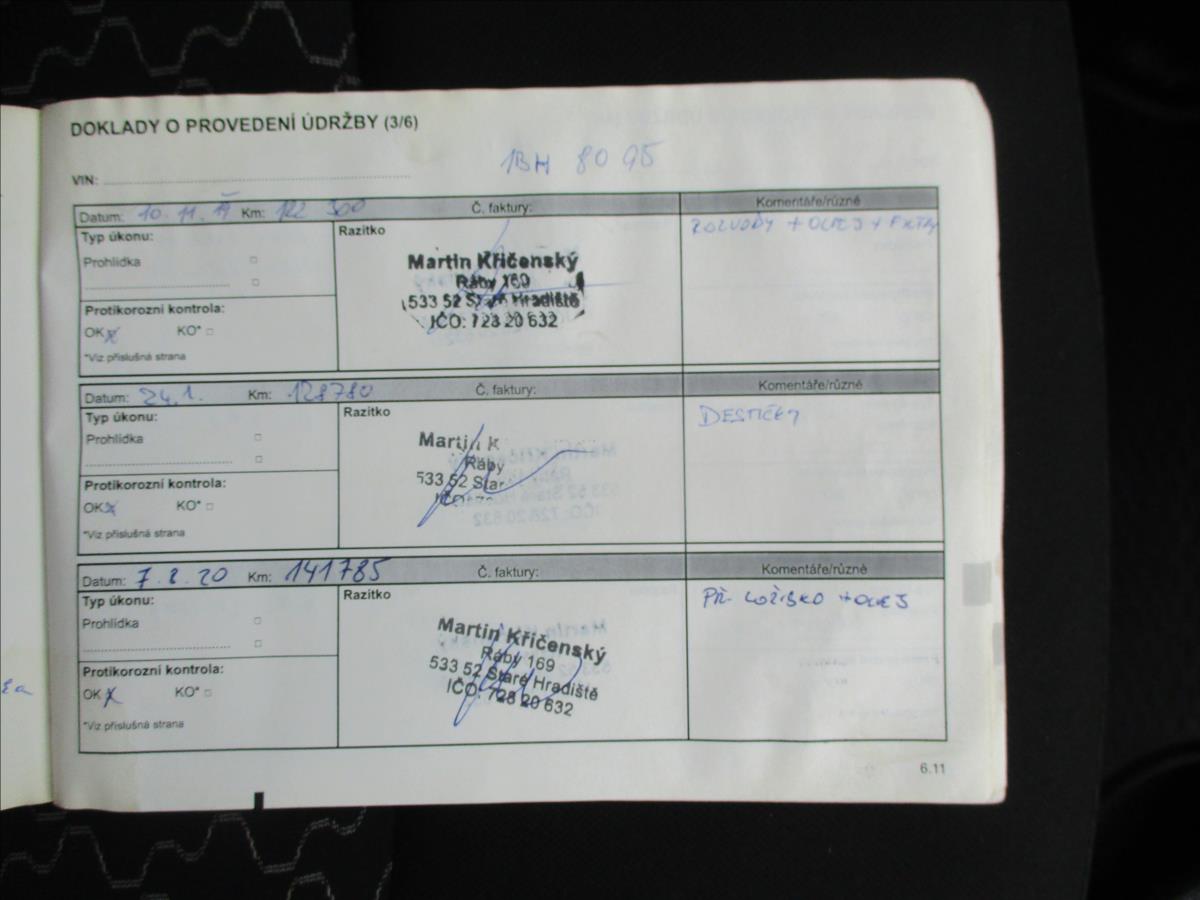 DOKLADY O PROVEDENÍ ÚDRŽBY (3/6)
1BH 80 95
VIN:
Datum: 10. 11. Km: 122 300 Č. faktury: Komentáře/různé
Typ úkonu: Razítko ROZVODY + OLEJ + FILTRY
Prohlídka
Martin Křičenský
Ráby 169
533 52 Staré Hradiště
IČO: 728 20 632
Protikorozní kontrola:
OK x KO*
*Viz příslušná strana
Datum: 24.1. Km: 128780 Č. faktury: Komentáře/různé
Typ úkonu: Razítko DESTIČKY
Prohlídka
Martin K
Ráby
533 52 Star
IČO: 7
Protikorozní kontrola:
OK x KO*
*Viz příslušná strana
Datum: 7. 2. 20 Km: 141785 Č. faktury: Komentáře/různé
Typ úkonu: Razítko PŘ. LOŽISKO + OLEJ
Prohlídka
Martin Křičenský
Ráby 169
533 52 Staré Hradiště
IČO: 728 20 632
Protikorozní kontrola:
OK x KO*
*Viz příslušná strana
6.11